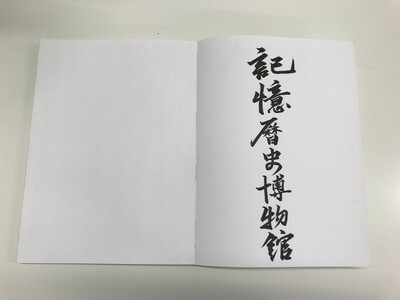 記憶曆史博物館